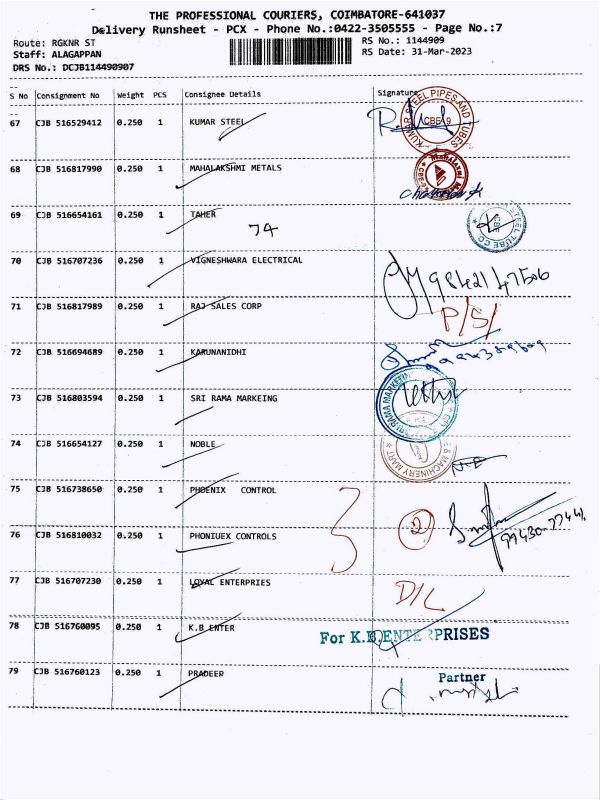 THE PROFESSIONAL COURIERS, COIMBATORE-641037
Delivery Runsheet - PCX - Phone No.:0422-3505555 - Page No.:7
Route: RGKNR ST
RS No.: 1144909
Staff: ALAGAPPAN
RS Date: 31-Mar-2023
DRS No.: DCJB114490907
S No Consignment No Weight PCS Consignee Details Signature
67 CJB 516529412 0.250 1 KUMAR STEEL
KUMAR STEEL PIPES AND TUBES
68 CJB 516817990 0.250 1 MAHALAKSHMI METALS
69 CJB 516654161 0.250 1 TAHER
74
STEEL TUBE CO
70 CJB 516707236 0.250 1 VIGNESHWARA ELECTRICAL
98421 47506
71 CJB 516817989 0.250 1 RAJ SALES CORP
P/S/
72 CJB 516694689 0.250 1 KARUNANIDHI
73 CJB 516803594 0.250 1 SRI RAMA MARKEING
SRI RAMA MARKETING
74 CJB 516654127 0.250 1 NOBLE
& MACHINERY MART
75 CJB 516738650 0.250 1 PHOENIX CONTROL
2
76 CJB 516810032 0.250 1 PHONIUEX CONTROLS
77 CJB 516707230 0.250 1 LOYAL ENTERPRIES
D/L
78 CJB 516760095 0.250 1 K.B.ENTER
For K.B.ENTERPRISES
79 CJB 516760123 0.250 1 PRADEEP
Partner